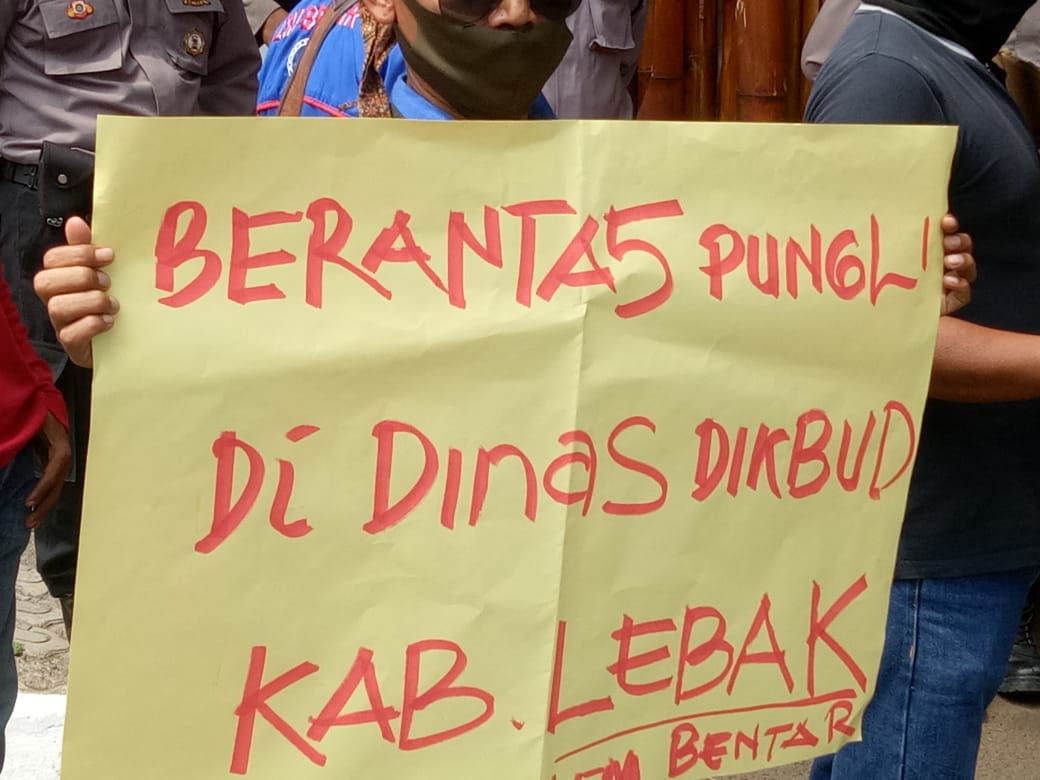 BERANTAS PUNGLI
Di DINaS DIKBUD
KAB. LEBAK
BENTAR